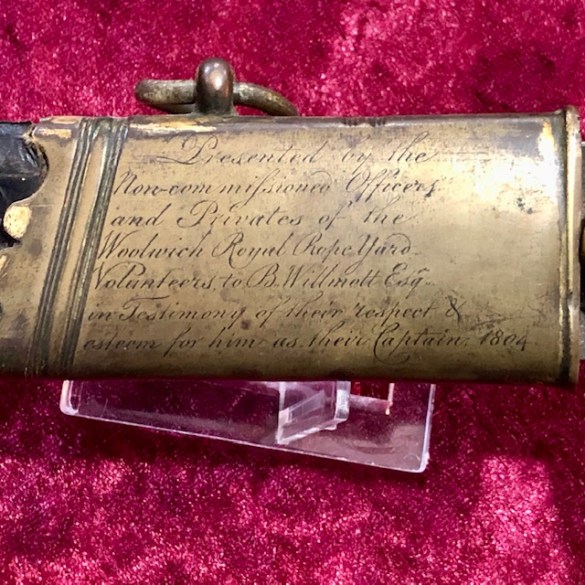 Presented by the
Non-commiſsioned Officers
and Privates of the
Woolwich Royal Rope Yard
Volunteers, to B. Willmott Esqr
in Testimony of their respect &
esteem for him as their Captain. 1804